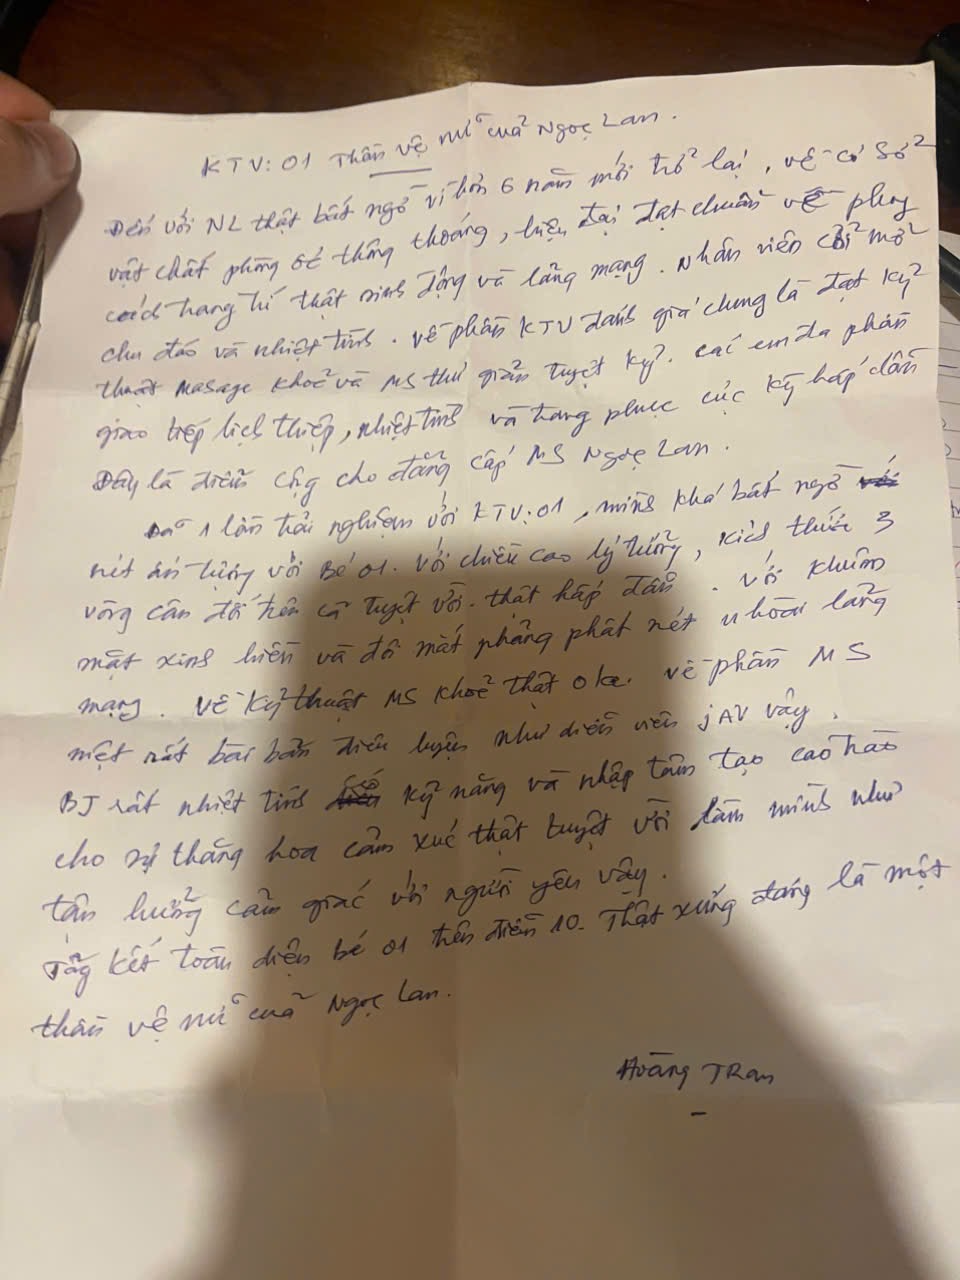 KTV: 01 Thần vệ nữ của Ngọc Lan.
Đến với NL thật bất ngờ vì hơn 6 năm mới trở lại, về cơ sở
vật chất phòng ốc thông thoáng, hiện đại đạt chuẩn về phong
cách trang trí thật sinh động và lãng mạn. Nhân viên cởi mở
chu đáo và nhiệt tình. Về phần KTV đánh giá chung là đạt kỹ
thuật Masage khoẻ và MS thư giãn tuyệt kỹ. Các em đa phần
giao tiếp lịch thiệp, nhiệt tình và trang phục cực kỳ hấp dẫn
Đây là điểm cộng cho đẳng cấp MS Ngọc Lan.
Đã 1 lần trải nghiệm với KTV: 01, mình khá bất ngờ
nét ấn tượng với Bé 01. Với chiều cao lý tưởng, kích thước 3
vòng cân đối trên cả tuyệt vời. thật hấp dẫn. Với khuôn
mặt xinh hiền và đôi mắt phảng phất nét u hoài lãng
mạng. Về kỹ thuật MS khoẻ thật oke. Về phần MS
mệt rất bài bản điêu luyện như diễn viên JAV vậy.
BJ rất nhiệt tình có kỹ năng và nhập tâm tạo cao trào
cho sự thăng hoa cảm xúc thật tuyệt vời làm mình như
tận hưởng cảm giác với người yêu vậy.
Tổng kết toàn diện bé 01 trên điểm 10. Thật xứng đáng là một
thần vệ nữ của Ngọc Lan.
Hoàng TRan